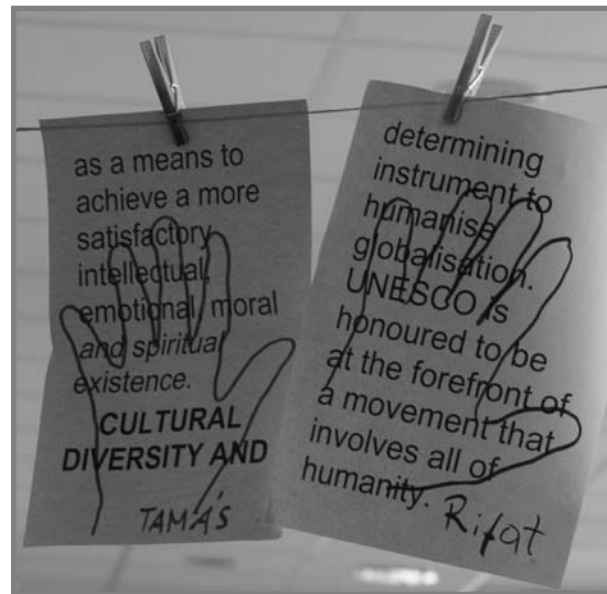 as a means to
achieve a more
satisfactory
intellectual,
emotional, moral
and spiritual
existence.
CULTURAL
DIVERSITY AND
TAMÁS
determining
instrument to
humanise
globalisation.
UNESCO is
honoured to be
at the forefront of
a movement that
involves all of
humanity.
Rifat